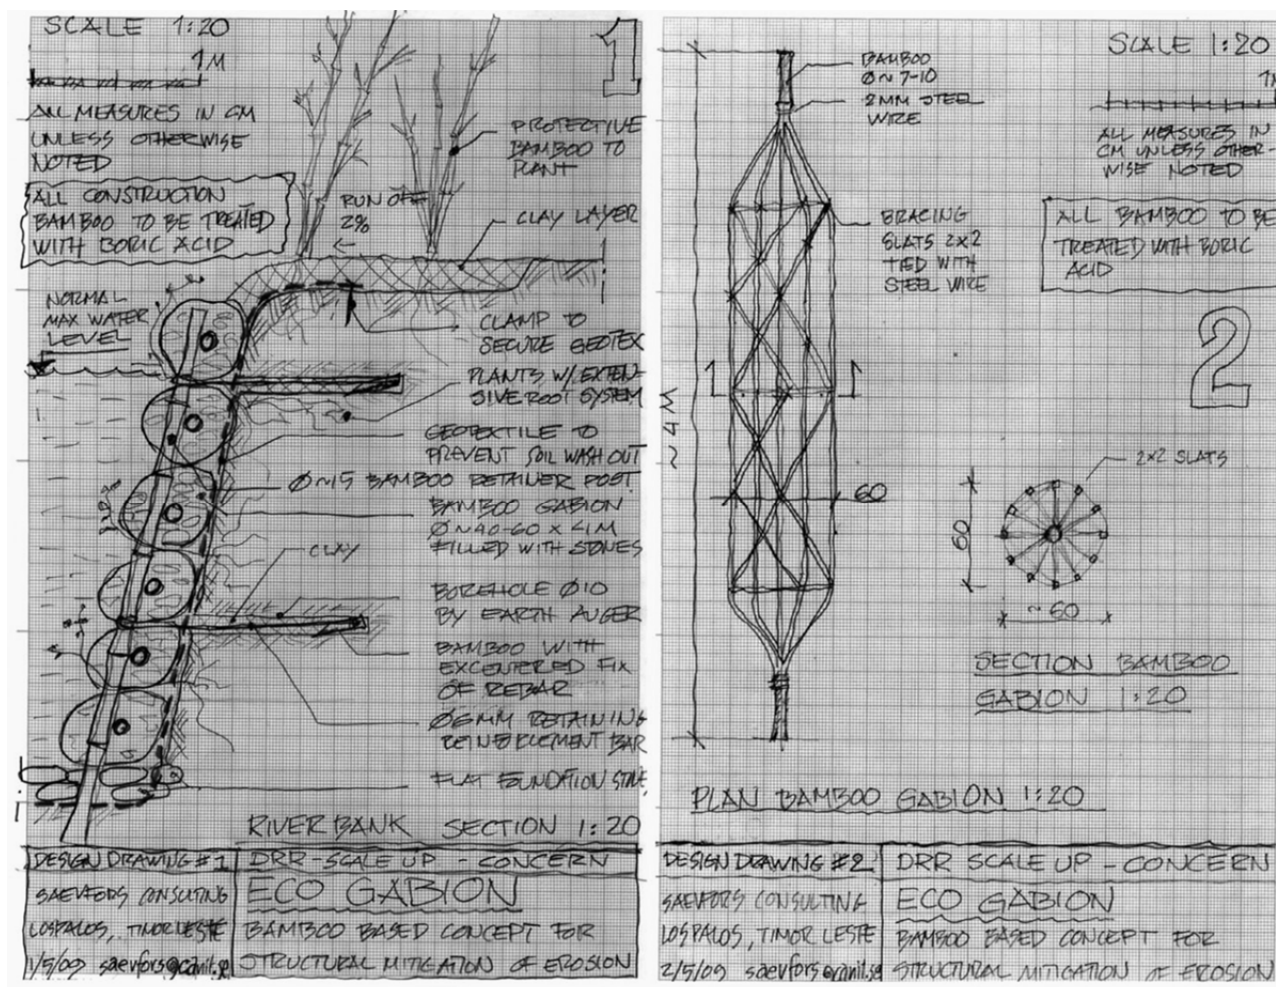 SCALE 1:20
1M
ALL MEASURES IN CM
UNLESS OTHERWISE
NOTED
ALL CONSTRUCTION
BAMBOO TO BE TREATED
WITH BORIC ACID
1
PROTECTIVE
BAMBOO TO
PLANT
RUN OFF
2%
CLAY LAYER
NORMAL
MAX WATER
LEVEL
CLAMP TO
SECURE GEOTEX
PLANTS W/ EXTEN-
SIVE ROOT SYSTEM
GEOTEXTILE TO
PREVENT SOIL WASH OUT
Ø~15 BAMBOO RETAINER POST
BAMBOO GABION
Ø~40-60 X 4M
FILLED WITH STONES
CLAY
BOREHOLE Ø10
BY EARTH AUGER
BAMBOO WITH
EXCENTERED FIX
OF REBAR
Ø6MM RETAINING
REINFORCEMENT BAR
FLAT FOUNDATION STNE
RIVER BANK SECTION 1:20
DESIGN DRAWING #1
DRR-SCALE UP - CONCERN
SAEVFORS CONSULTING
LOSPALOS, TIMOR LESTE
1/5/09
ECO GABION
BAMBOO BASED CONCEPT FOR
STRUCTURAL MITIGATION OF EROSION
BAMBOO
Ø~7-10
2MM STEEL
WIRE
SCALE 1:20
1M
ALL MEASURES IN
CM UNLESS OTHER-
WISE NOTED
BRACING
SLATS 2X2
TIED WITH
STEEL WIRE
ALL BAMBOO TO BE
TREATED WITH BORIC
ACID
2
1
1
~4M
60
2X2 SLATS
60
~60
SECTION BAMBOO
GABION 1:20
PLAN BAMBOO GABION 1:20
DESIGN DRAWING #2
DRR SCALE UP - CONCERN
SAEVFORS CONSULTING
LOSPALOS, TIMOR LESTE
2/5/09
ECO GABION
BAMBOO BASED CONCEPT FOR
STRUCTURAL MITIGATION OF EROSION